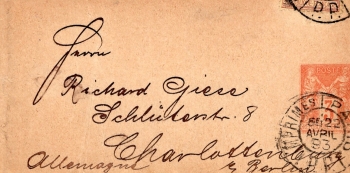 Herrn
Richard Giese
Schlüterstr. 8
Charlottenburg
Allemagne b/ Berlin
IMPRIMES PARIS
AVRIL
93